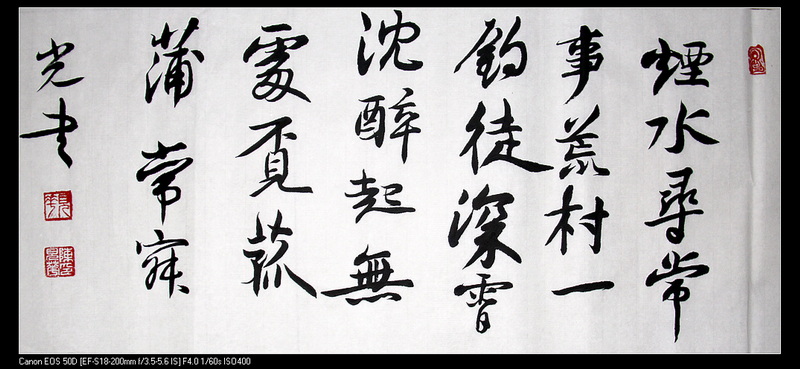 煙水尋常
事荒村一
釣徒深霄
沈醉起無
處覔菰
蒲 常
光書
Canon EOS 50D [EF-S18-200mm f/3.5-5.6 IS] F4.0 1/60s ISO400